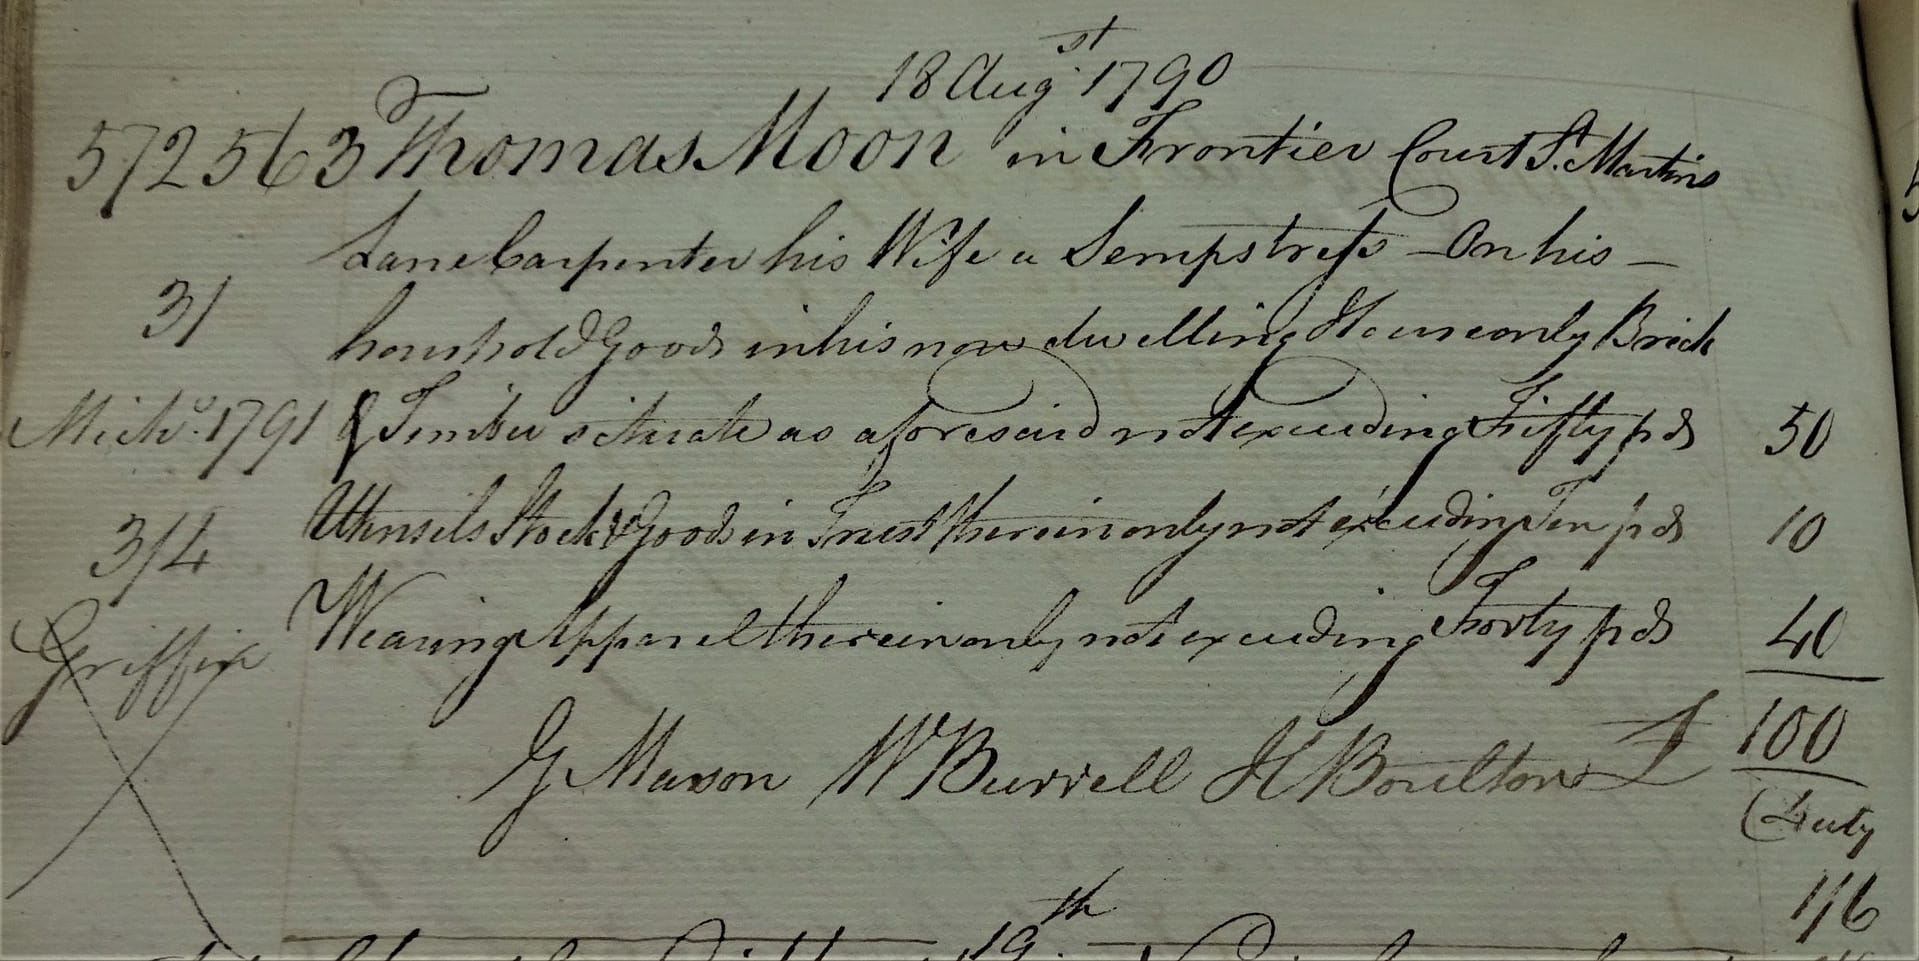 18 Augst 1790
572563 Thomas Moon in Frontier Court St. Martins
Lane Carpenter his Wife a Sempstress – On his –
31
houshold Goods in his now dwelling House only Brick
Mich's. 1791
& Timber situate as aforesaid not exceeding Fifty pds 50
3/4
Utensils Stock & Goods in Trust therein only not exceeding Ten pds 10
Griffin
Wearing Apparel therein only not exceeding Forty pds 40
G Mason W Burrell H Boulton £ 100
Duty
1/6
19th